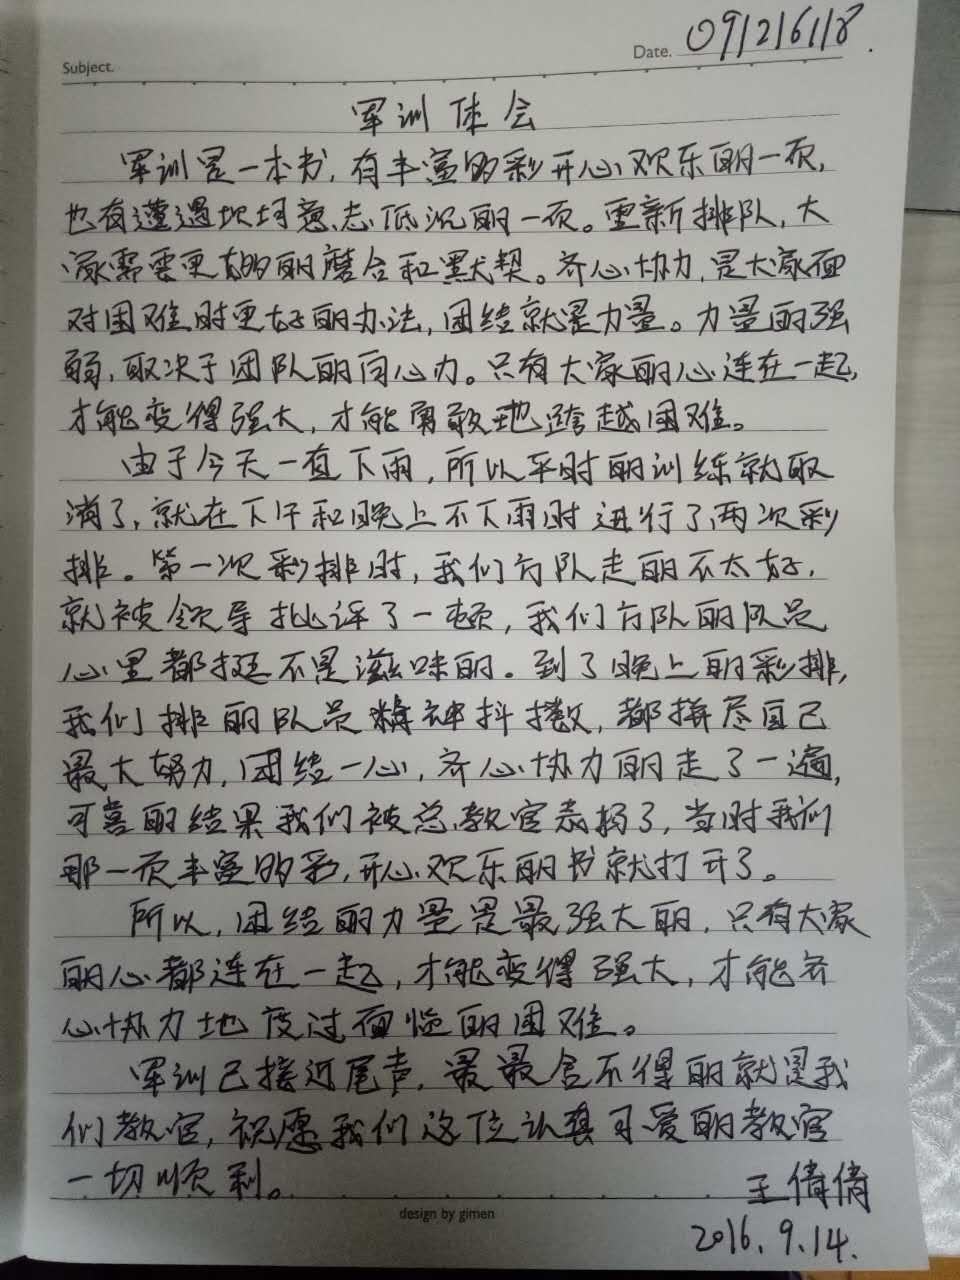 Subject.
Date. 09121618.
军训体会
军训是一本书，有丰富的彩开心欢乐的一页，
也有遭遇坎坷意志低沉的一页。重新排队，大
家需要更多的的磨合和默契。齐心协力，是大家面
对困难时更好的办法，团结就是力量。力量的强
弱，取决于团队的向心力。只有大家的心连在一起，
才能变得强大，才能勇敢地跨越困难。
由于今天一直下雨，所以平时的训练就取
消了，就在下午和晚上不下雨时进行了两次彩
排。第一次彩排时，我们方队走的不太好，
就被领导批评了一顿，我们方队的队员
心里都挺不是滋味的。到了晚上的彩排，
我们排的队员精神抖擞，都拼尽自己
最大努力，团结一心，齐心协力的走了一遍，
可喜的结果我们被总教官表扬了，当时我们
那一页丰富的彩，开心欢乐的书就打开了。
所以，团结的力量是最强大的，只有大家
的心都连在一起，才能变得强大，才能齐
心协力地度过面临的困难。
军训已接近尾声，最最舍不得的就是我
们教官，祝愿我们这位认真可爱的教官
一切顺利。
王倩倩
design by gimen
2016.9.14.